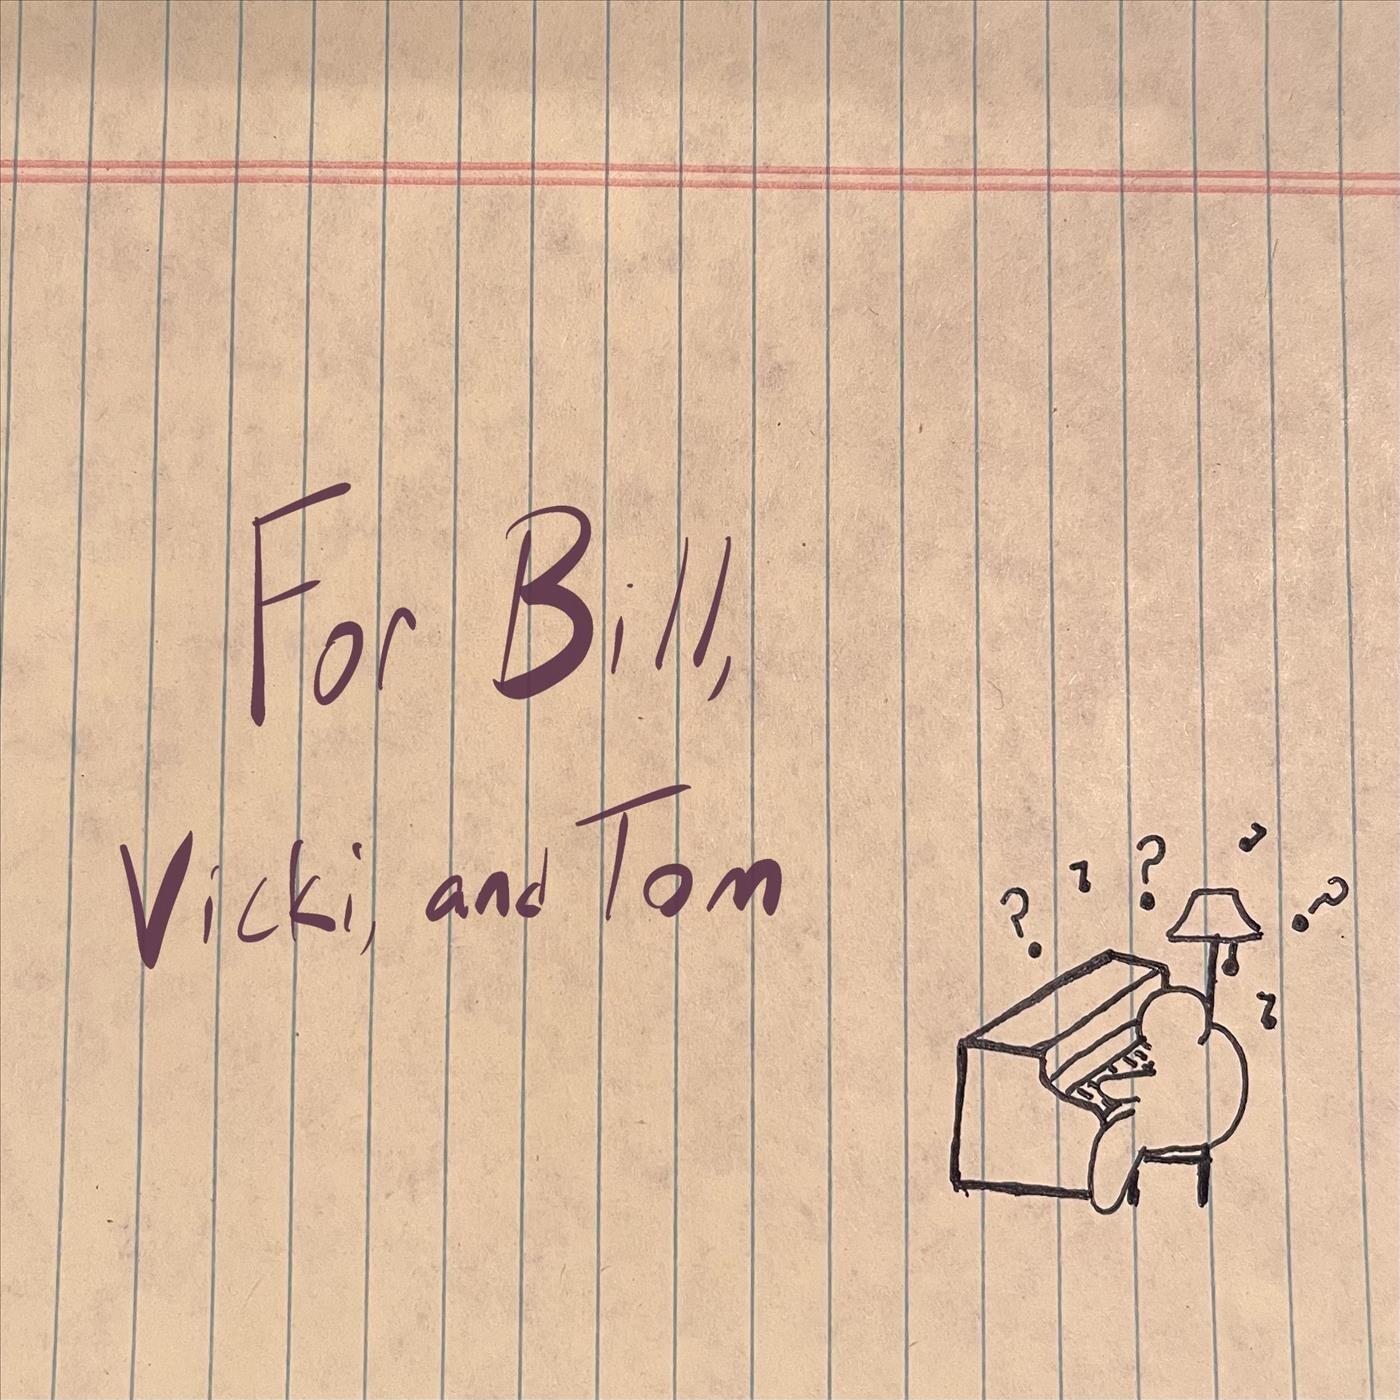 For Bill,
Vicki, and Tom
? ? ?